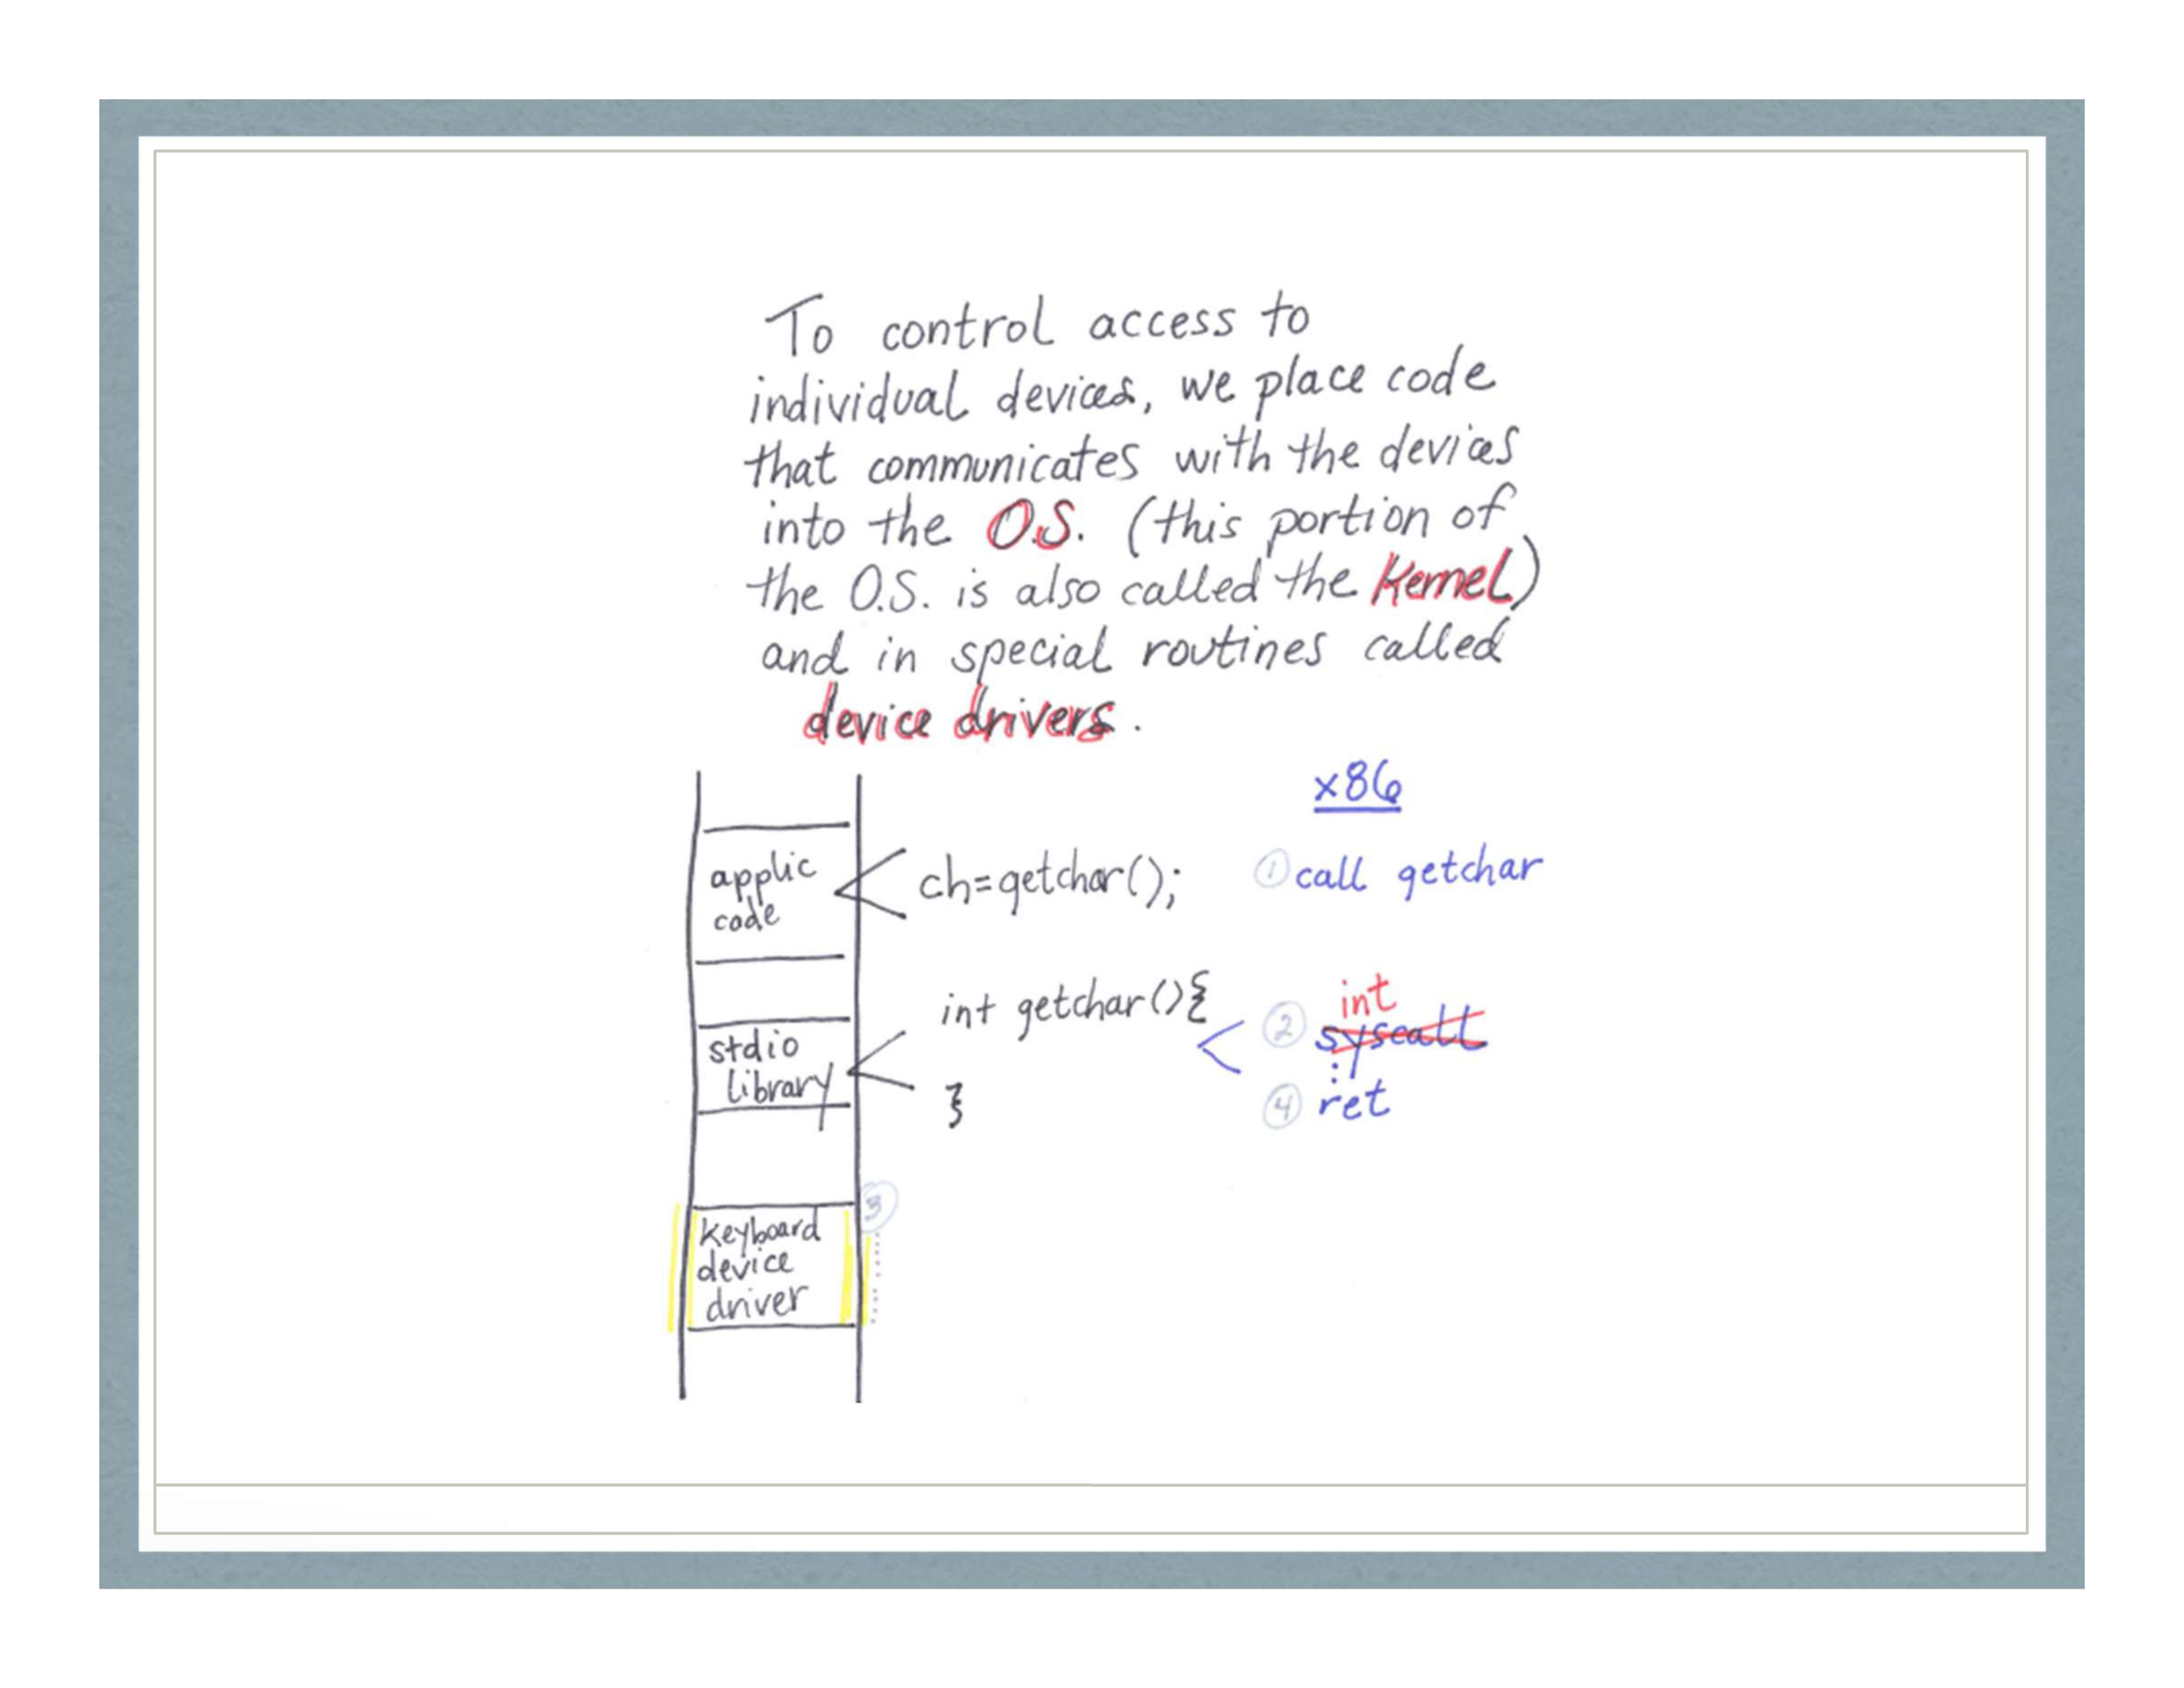 To control access to
individual devices, we place code
that communicates with the devices
into the O.S. (this portion of
the O.S. is also called the Kernel)
and in special routines called
device drivers.
x86
applic
code
ch=getchar();
① call getchar
int getchar(){
}
② int
syscall
⋮
④ ret
stdio
library
③
Keyboard
device
driver